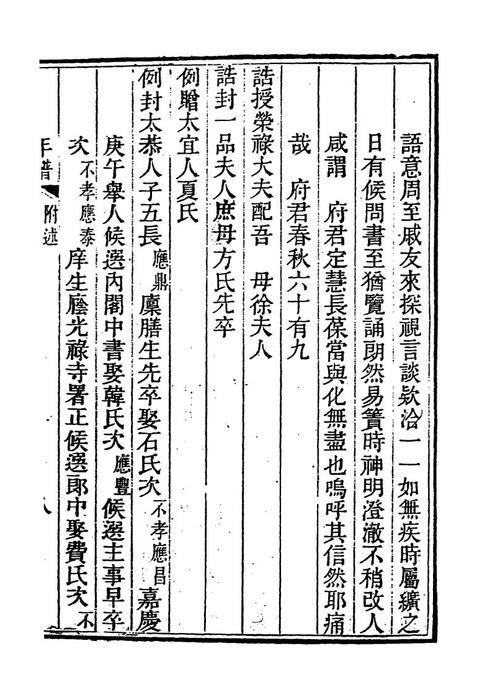 語意周至戚友來探視言談欵洽一一如無疾時屬纊之
日有候問書至猶覽誦朗然易簀時神明澄澈不稍改人
咸謂　府君定慧長葆當與化無盡也嗚呼其信然耶痛
哉　府君春秋六十有九
誥授榮祿大夫配吾　母徐夫人
誥封一品夫人庶母方氏先卒
例贈太宜人夏氏
例封太恭人子五長應鼎廩膳生先卒娶石氏次不孝應昌嘉慶
庚午舉人候選內閣中書娶韓氏次應豐候選主事早卒
次不孝應泰庠生廕光祿寺署正候選郎中娶費氏次不
年譜　附述　八